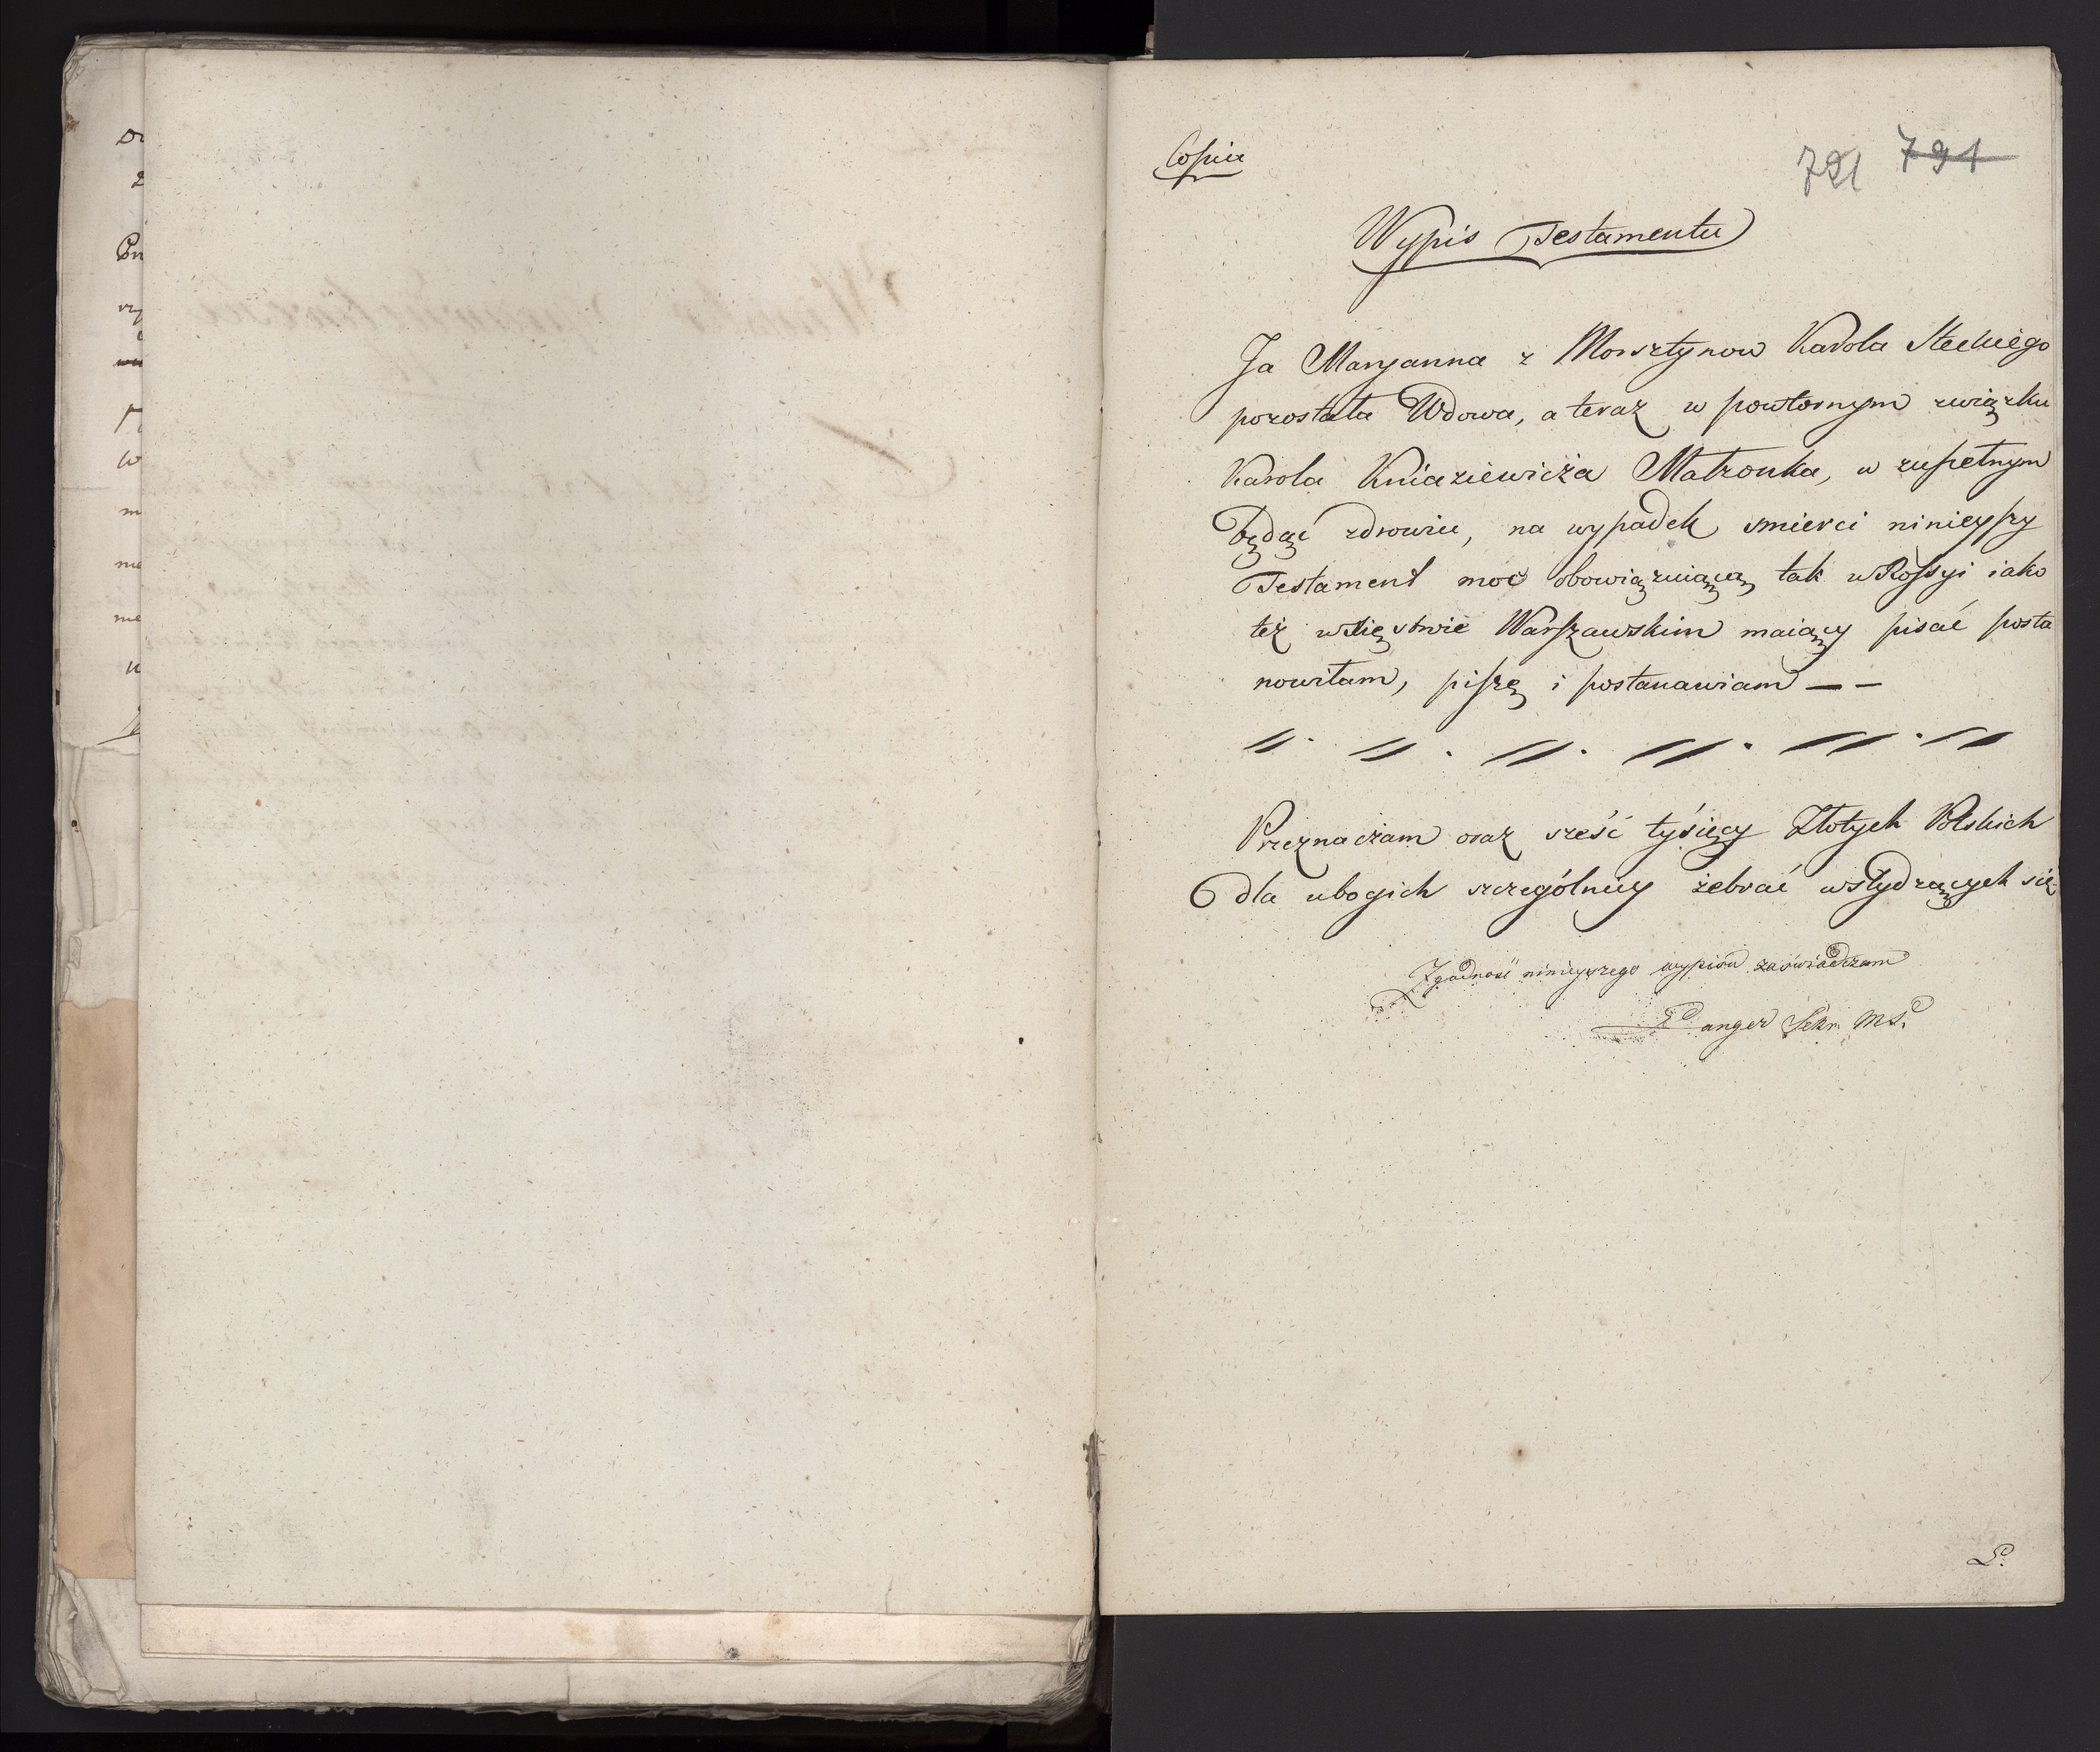 Copia
721 791
Wypis Testamentu
Ja Maryanna z Morsztynow Karola Steckiego
pozostała Wdowa, a teraz w powtornym związku
Karola Kniaziewicża Małzonka, w zupełnym
będąć zdrowiu, na wypadek smierci ninieyszy
Testament moc obowiązuiącą, tak w Rossyi iako
też w Xięstwie Warszawskim maiący pisać posta
nowiłam, piszę i postanawiam — —
Przeznacżam oraz sześć tyśięcy Złotych Polskich
dla ubogich szczególniey żebrać wstydzących się
Zgodność ninieyszego wypisu zaświadczam
Langer Sekr. MS.